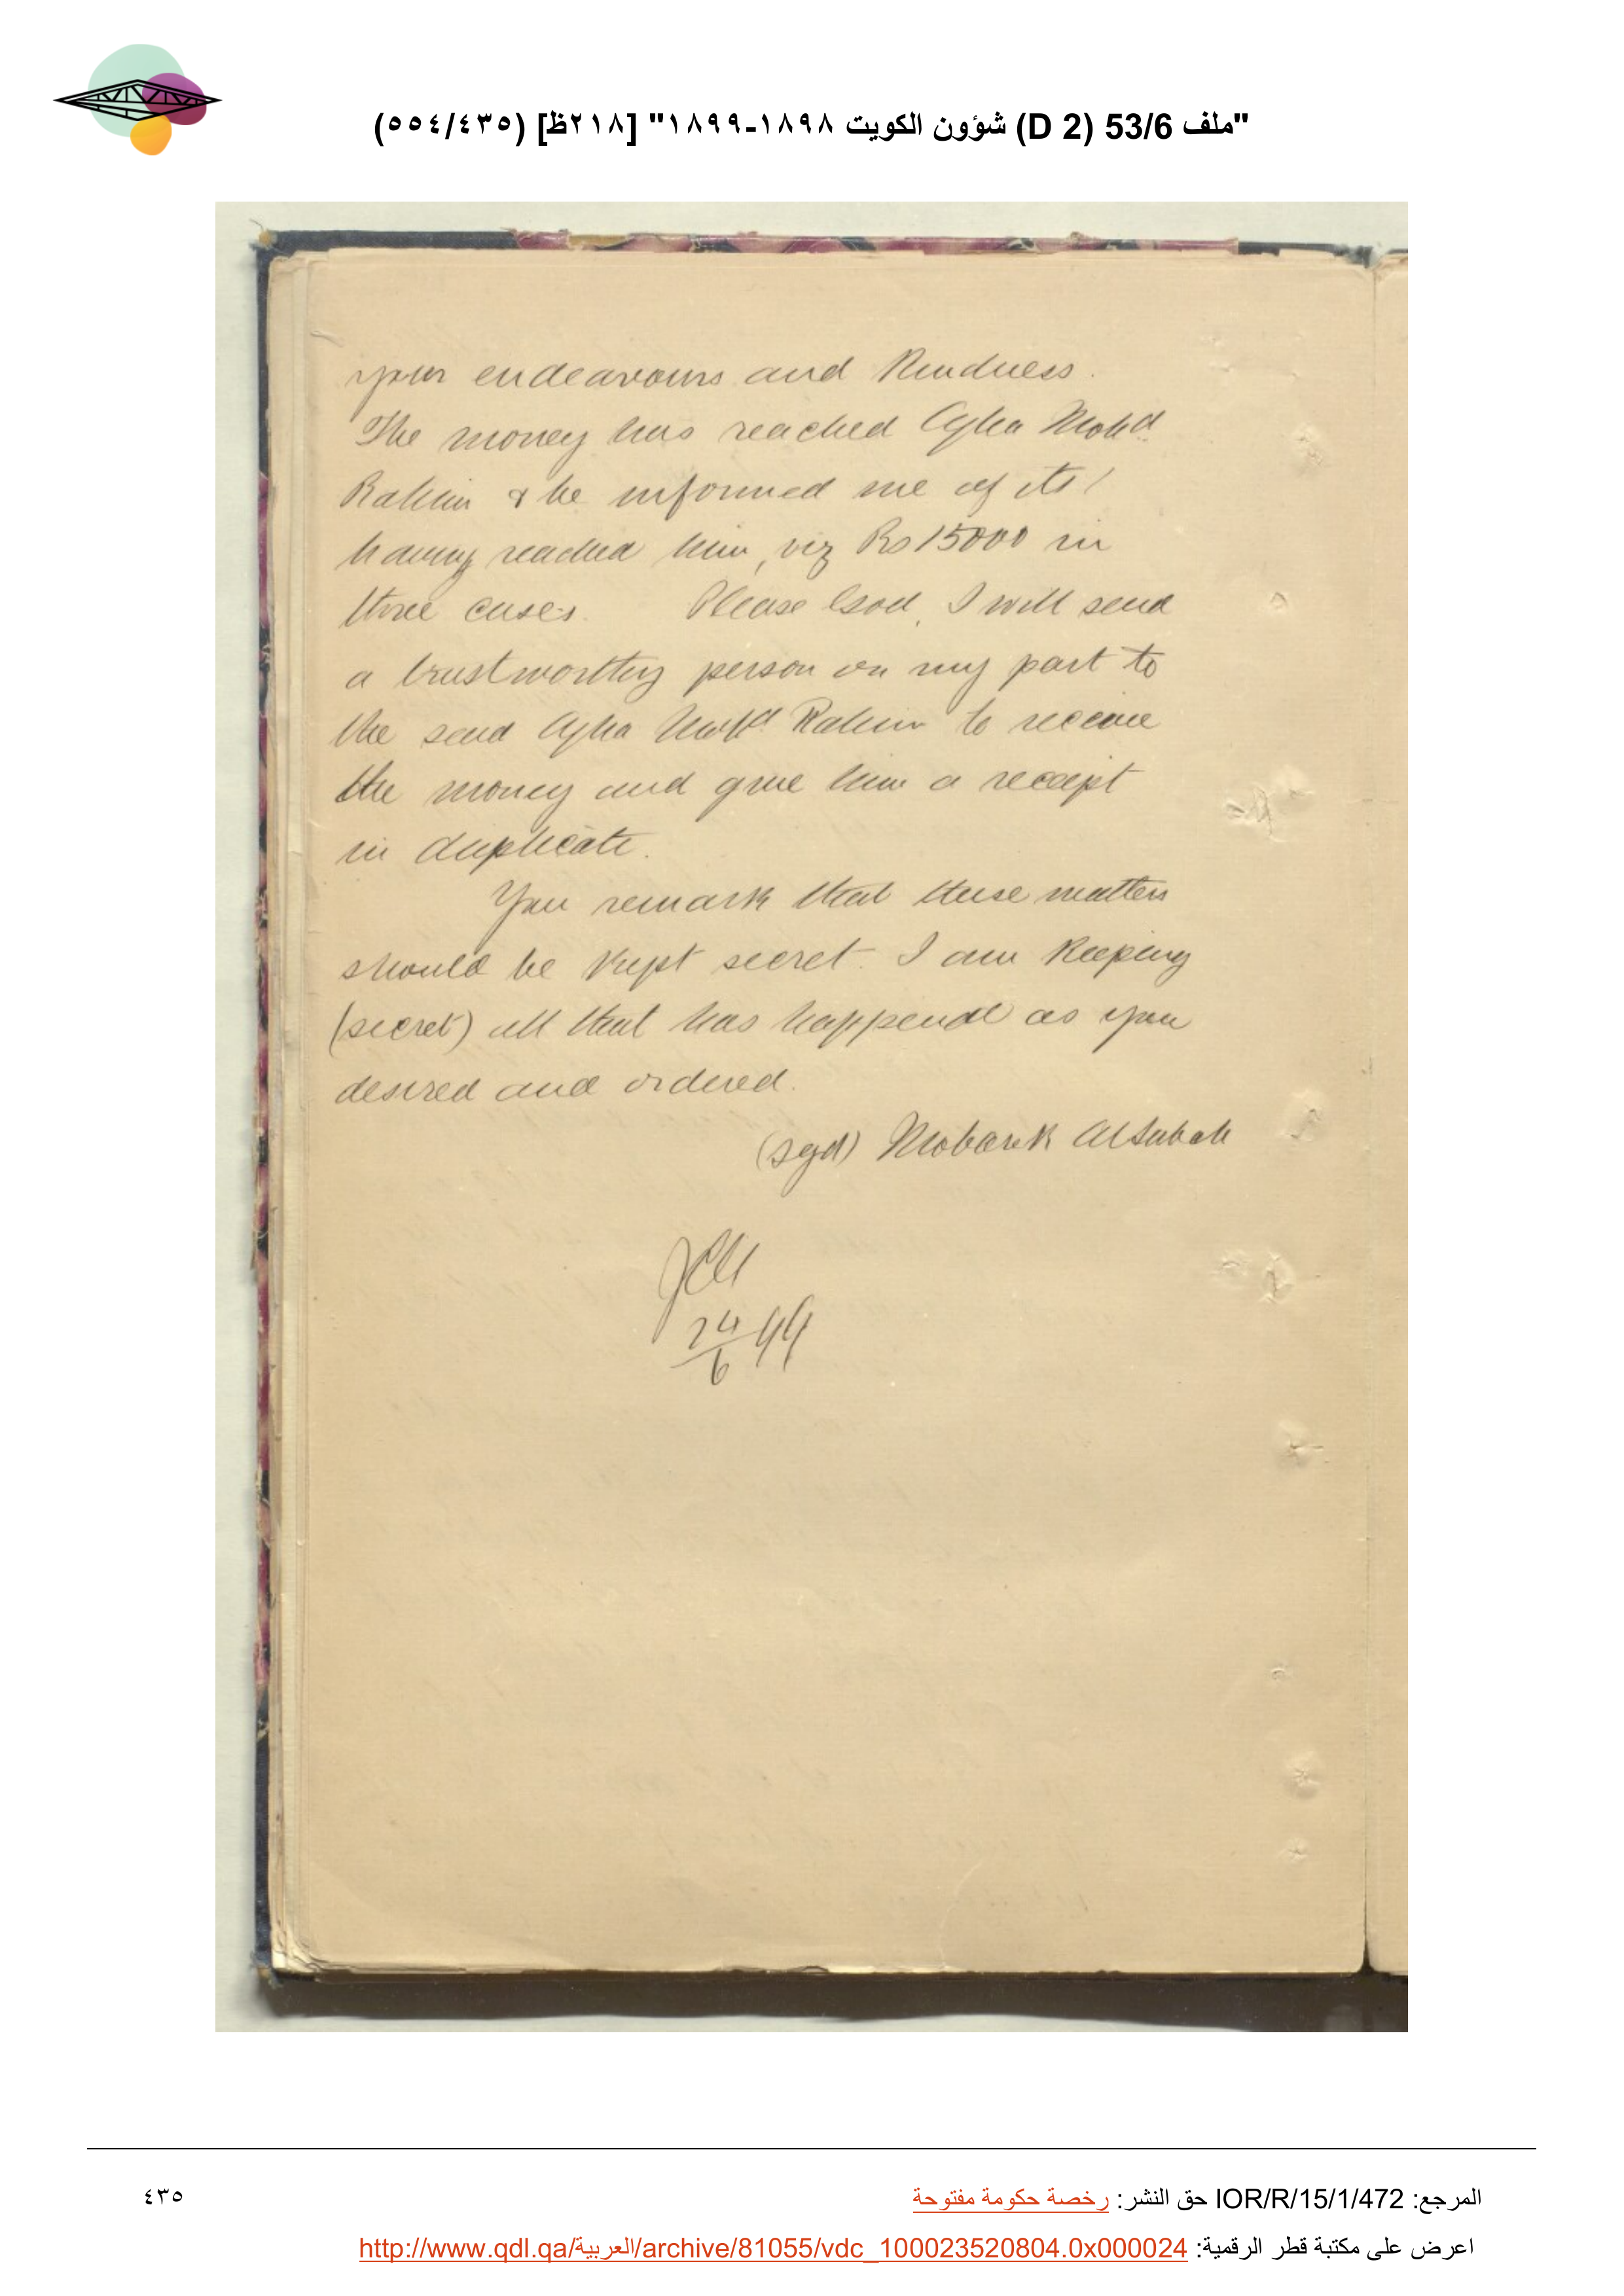 "ملف 53/6 (D 2) شؤون الكويت ١٨٩٨-١٨٩٩" [٢١٨ظ] (٤٣٥/٥٥٤)
your endeavours and kindness.
The money has reached Agha Mohd
Rahim & he informed me of its
having reached him, viz Rs 15000 in
three cases. Please God, I will send
a trustworthy person on my part to
the send Agha Mohd Rahim to receive
the money and give him a receipt
in duplicate.
You remark that these matters
should be kept secret. I am keeping
(secret) all that has happened as you
desired and ordered.
(sgd) Mobarek AlSubah
24/6 99
المرجع: IOR/R/15/1/472 حق النشر: رخصة حكومة مفتوحة
٤٣٥
اعرض على مكتبة قطر الرقمية: http://www.qdl.qa/العربية/archive/81055/vdc_100023520804.0x000024